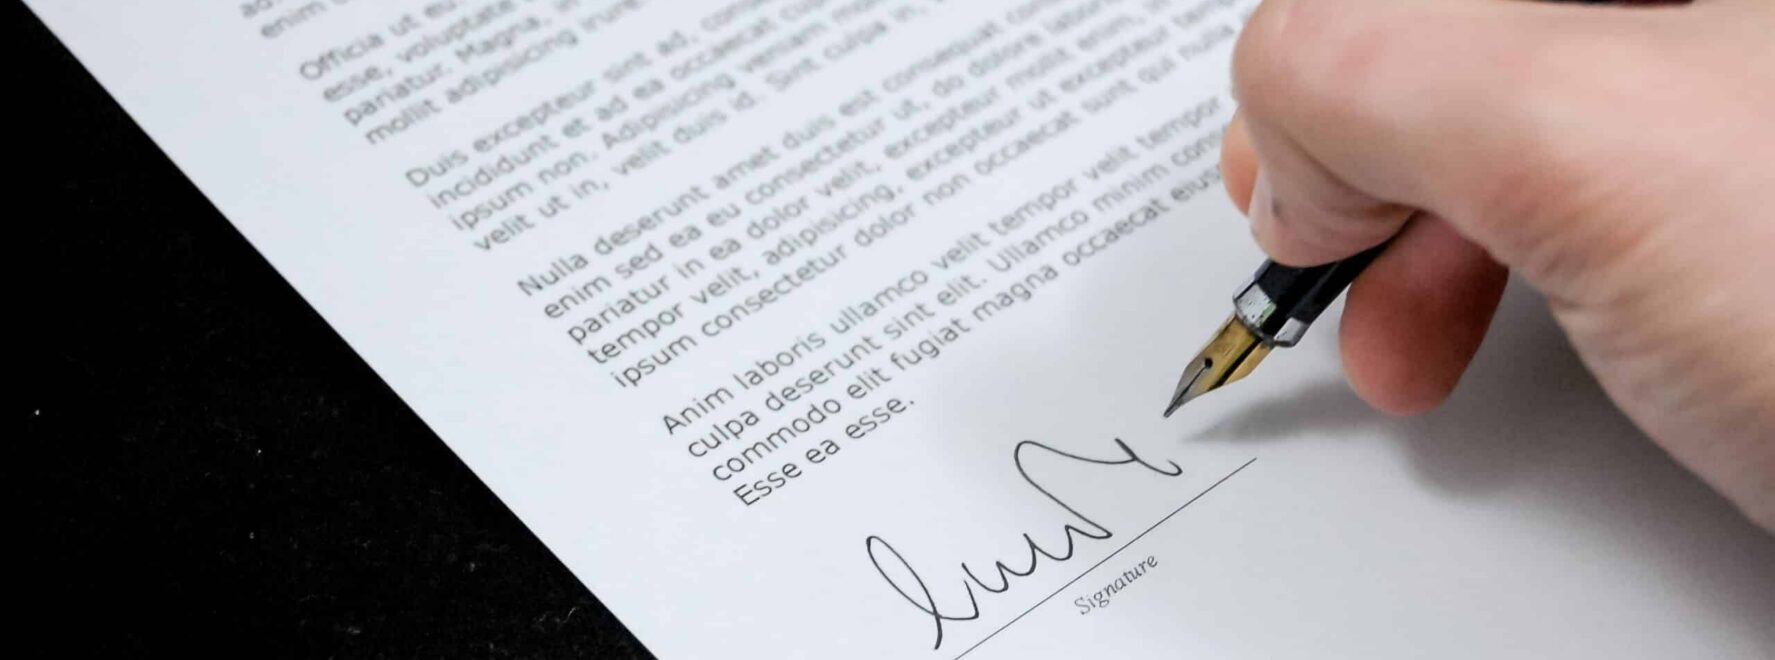 enim
Officia ut eu
esse, voluptate
pariatur. Magna, in
mollit adipisicing irure
Duis excepteur sint ad, cons
incididunt et ad ea occaecat cup
ipsum non. Adipisicing veniam mol
velit ut in, velit duis id. Sint culpa in,
Nulla deserunt amet duis est consequat com
enim sed ea eu consectetur ut, do dolore labor
pariatur in ea dolor velit, excepteur mollit enim,
tempor velit, adipisicing, excepteur ut excepteur temp
ipsum consectetur dolor non occaecat sunt qui nulla
Anim laboris ullamco velit tempor velit tempor
culpa deserunt sint elit. Ullamco minim cons
commodo elit fugiat magna occaecat eius
Esse ea esse.
Signature